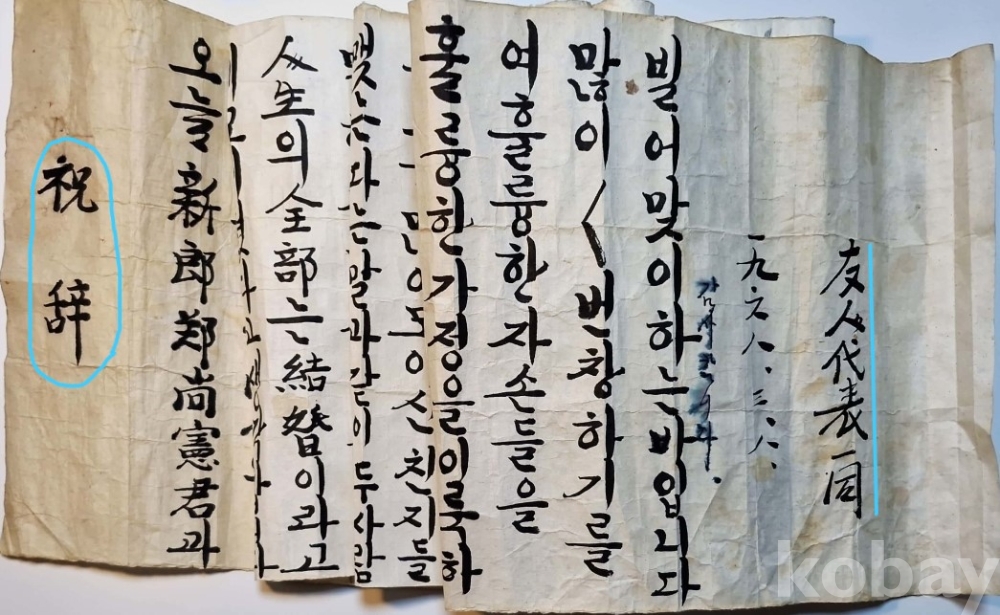 祝辞
오늘新郎郑尚憲君과
人生의全部는結婚이라고
맺는다는말과같이 두사람
친지들
훌륭한가정을이룩하
여훌륭한자손들을
많이〱번창하기를
빌어맞이하는바입니다
一九六八.三.八.
友人代表一同
kobay